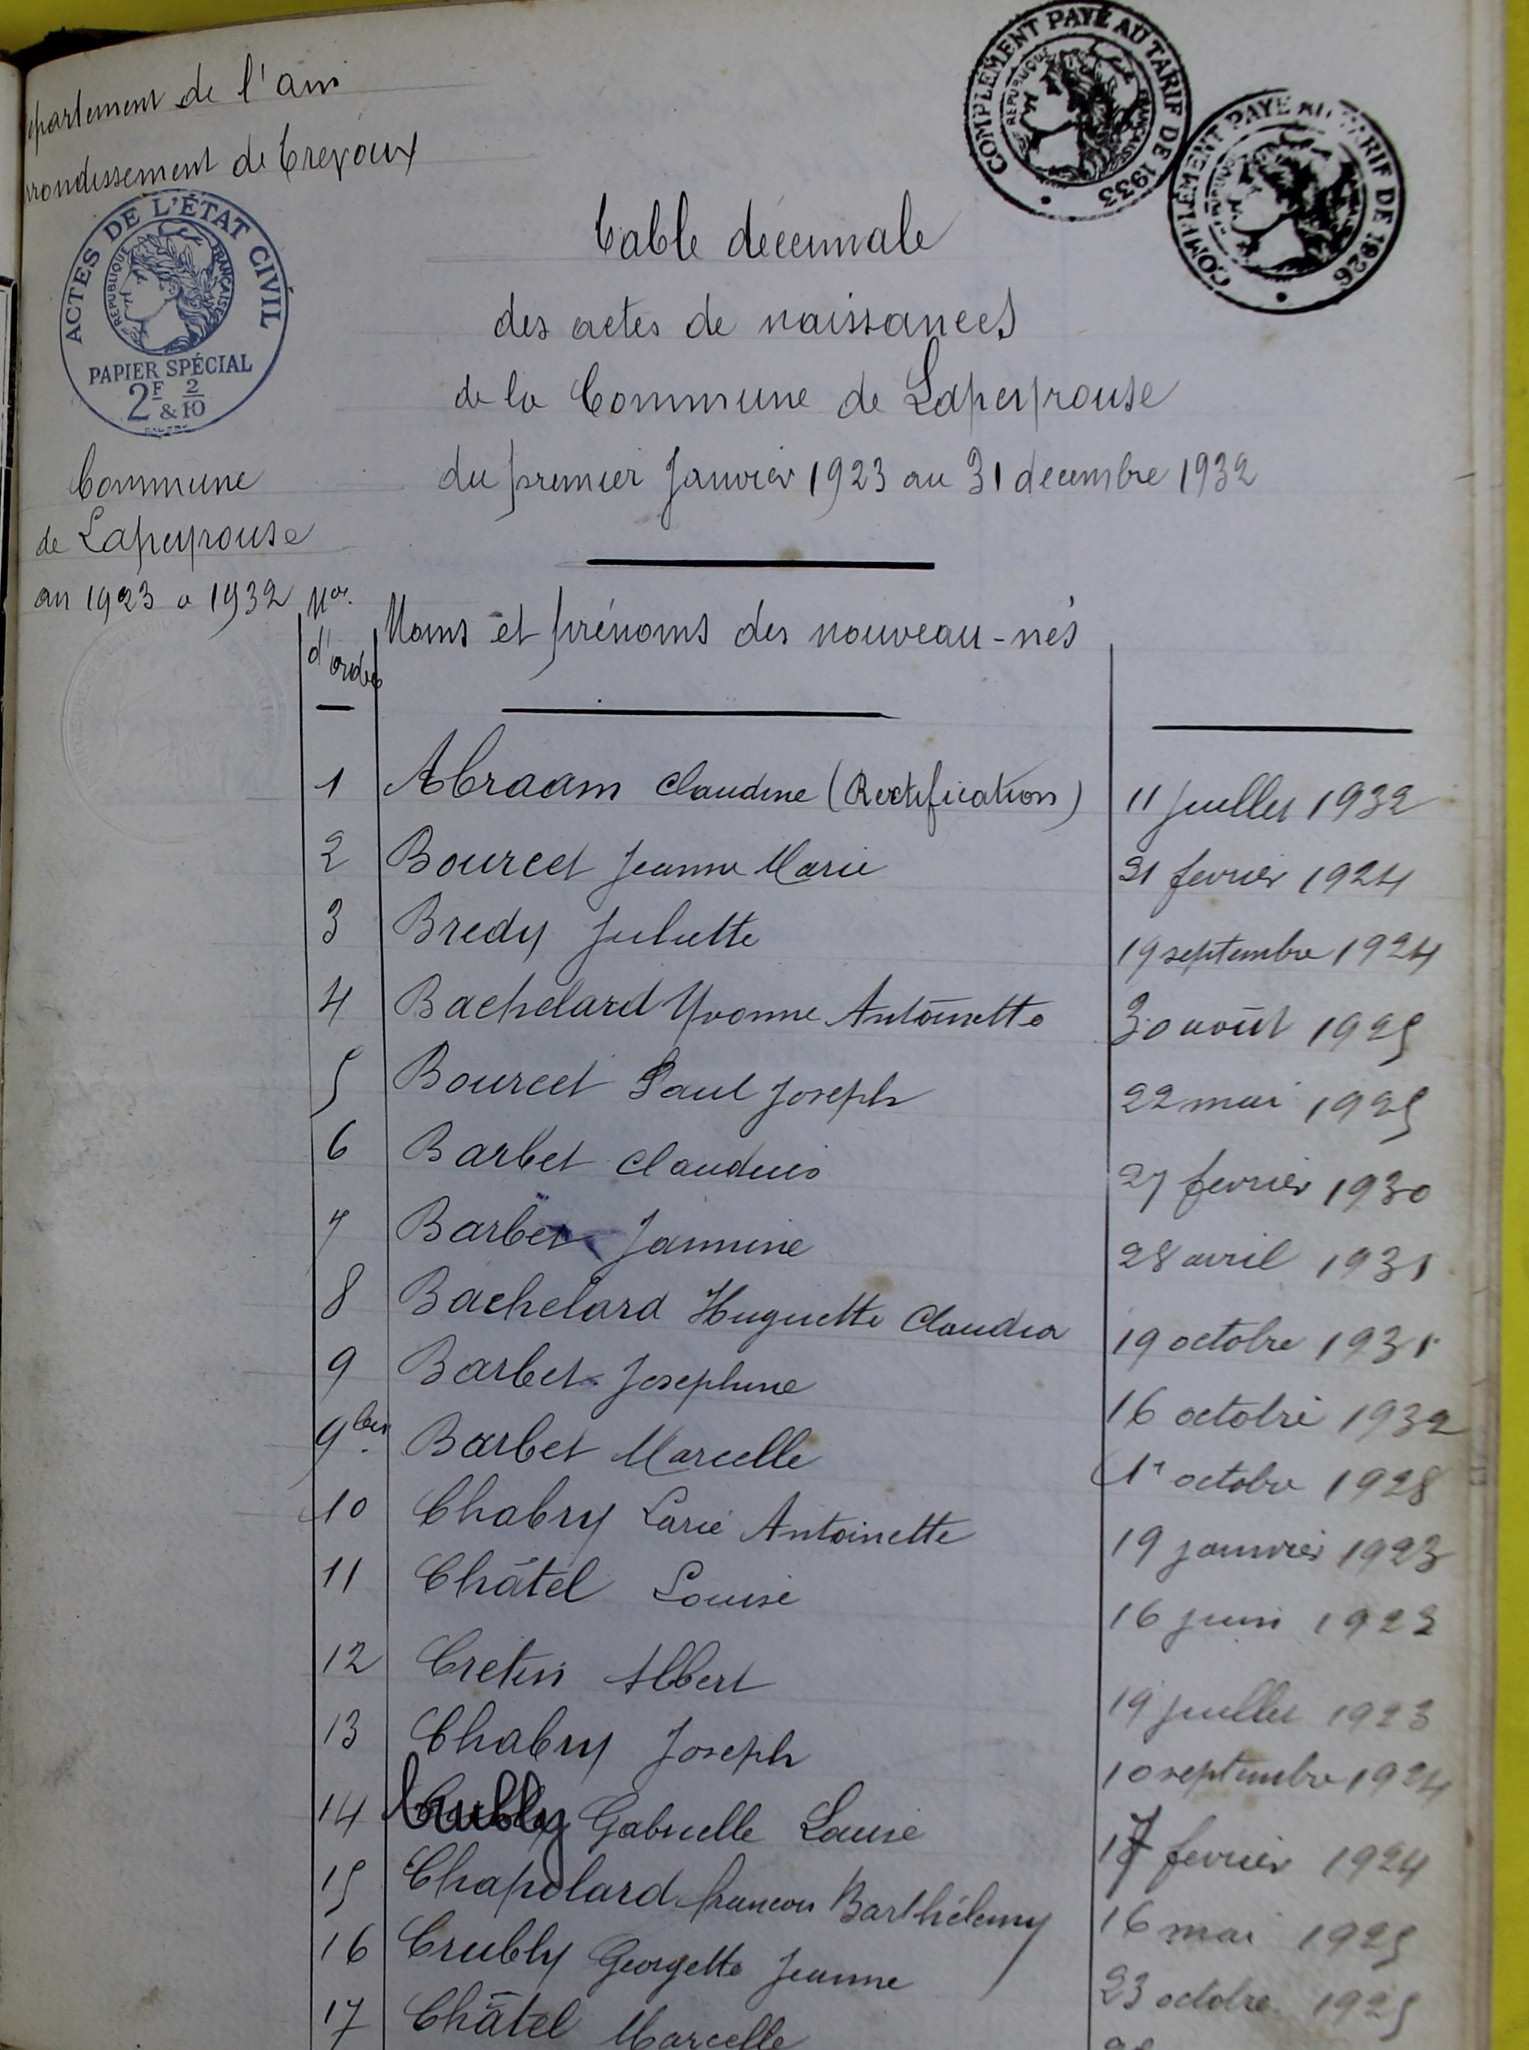 epartement de l'ain
rrondissement de Trevoux
COMPLEMENT PAYÉ AU TARIF DE 1933
REPUBLIQUE FRANÇAISE
COMPLEMENT PAYÉ AU TARIF DE 1926
ACTES DE L'ÉTAT CIVIL
REPUBLIQUE FRANÇAISE
PAPIER SPÉCIAL
2F & 2/10
Table décennale
des actes de naissances
de la Commune de Lapeyrouse
du premier Janvier 1923 au 31 decembre 1932
Commune
de Lapeyrouse
an 1923 a 1932
Nos d'ordre
Noms et prénoms des nouveau-nés
1 Abraam Claudine (Rectification) 11 juillet 1932
2 Bourcet Jeanne Marie 21 fevrier 1924
3 Bredy Juliette 19 septembre 1924
4 Bachelard Yvonne Antoinette 30 août 1925
5 Bourcet Paul Joseph 22 mai 1925
6 Barbet Claudius 27 fevrier 1930
7 Barbet Jannine 28 avril 1931
8 Bachelard Huguette Claudia 19 octobre 1931
9 Barbet Josephine 16 octobre 1932
9 bis Barbet Marcelle 1r octobre 1928
10 Chabry Antoinette 19 janvier 1923
11 Châtel Louise 16 juin 1923
12 Cretin Albert 19 juillet 1923
13 Chabry Joseph 10 septembre 1924
14 Crubly Gabrielle Louise 17 fevrier 1924
15 Chapolard francois Barthélemy 16 mai 1925
16 Crubly Georgette Jeanne 23 octobre 1925
17 Châtel Marcelle